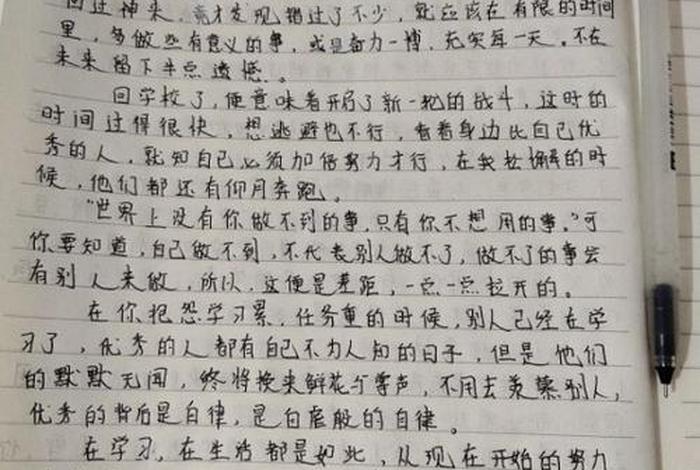 回过神来，竟才发现错过了不少，就应该在有限的时间
里，多做些有意义的事，或是奋力一博，充实每一天。不在
未来留下半点遗憾。
回学校了，便意味着开启了新一轮的战斗，这时的
时间过得很快，想逃避也不行，看着身边比自己优
秀的人，就知自己必须加倍努力才行，在我松懈的时
候，他们都还有仰月奔跑。
“世界上没有你做不到的事，只有你不想用的事。”可
你要知道，自己做不到，不代表别人做不了，做不了的事会
有别人来做，所以，这便是差距，一点一点拉开的。
在你抱怨学习累，任务重的时候，别人已经在学
习了，优秀的人都有自己不为人知的日子，但是他们
的默默无闻，终将换来鲜花与掌声，不用去羡慕别人，
优秀的背后是自律，是白磨般的自律。
在学习，在生活都是如此，从现在开始的努力